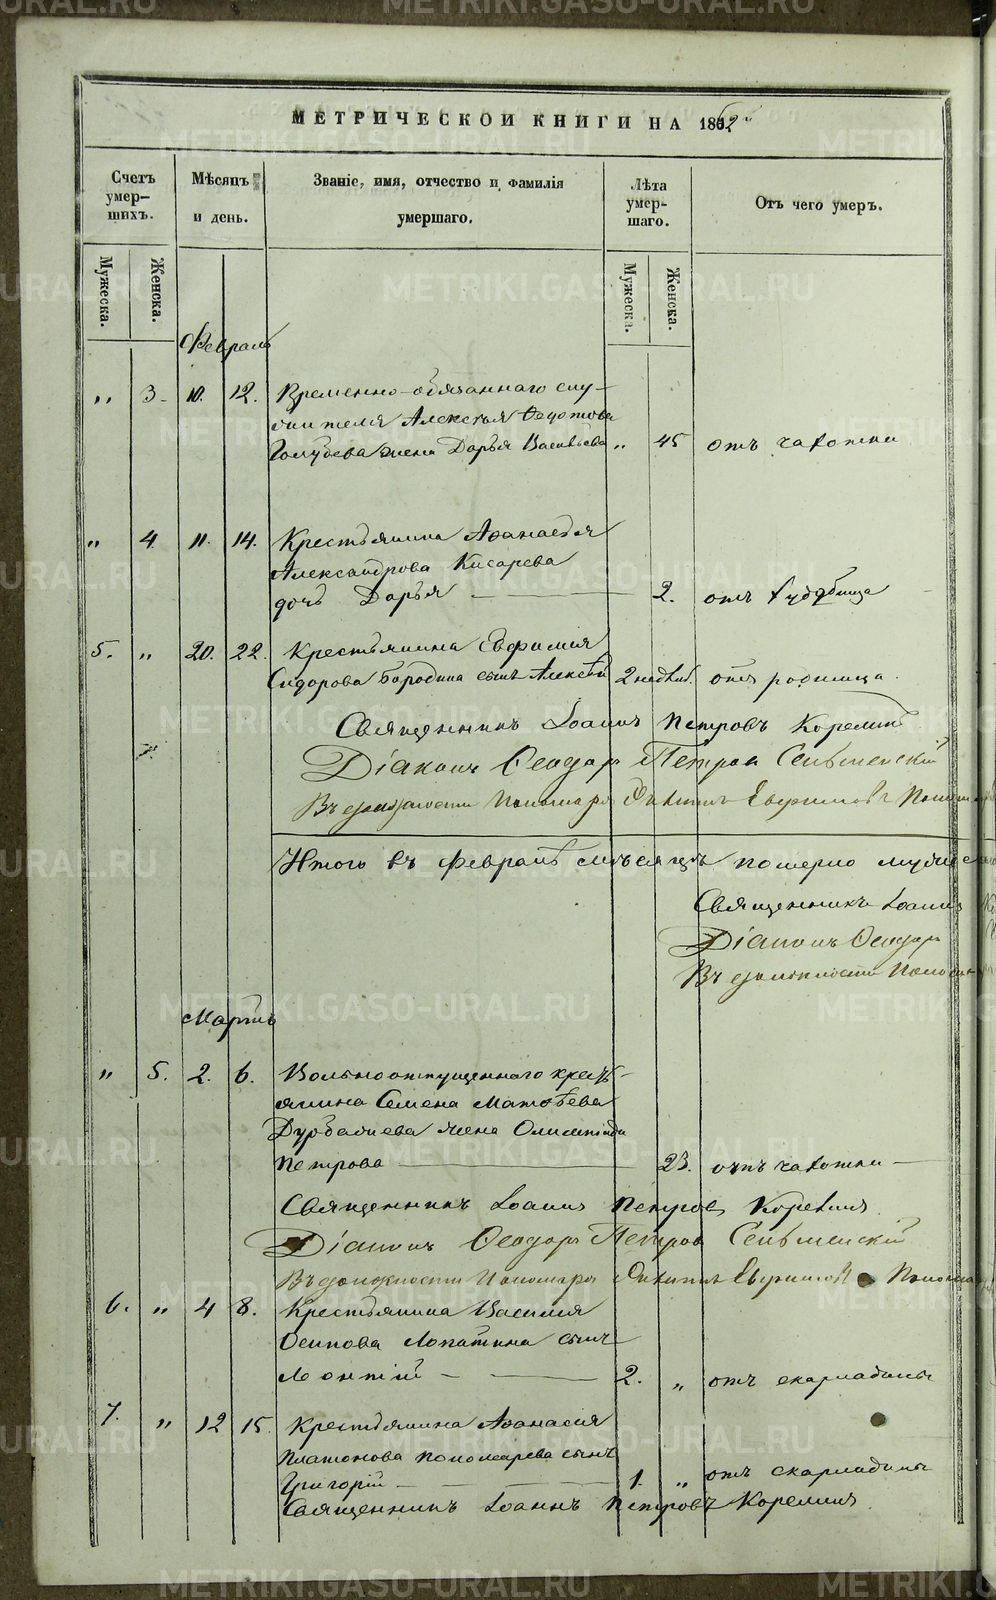 METRIKI.GASO-URAL.RU
МЕТРИЧЕСКОЙ КНИГИ НА 1862
Счетъ умер-шихъ.
Мѣсяцъ и день.
Званіе, имя, отчество и фамилія умершаго.
Лѣта умер-шаго.
Отъ чего умеръ.
Мужеска.
Женска.
Мужеска.
Женска.
Февраль
" 3 10. 12. Временно-обязаннаго слу-
жителя Алексѣя Ѳедотова
Голубева жена Дарья Васильева " 45 отъ чахотки
" 4 11. 14. Крестьянина Аѳанасья
Александрова Кисарева
дочь Дарья 2. отъ
5. " 20. 22. Крестьянина Евфимия
Сидорова Бородина сынъ Алексѣй 2 недѣл. отъ родимца
Священникъ Іоаннъ Петровъ
Діаконъ Ѳеодоръ Петровъ
Въ должности Пономаря Никита Евфимовъ
Итого въ Февралѣ мѣсяцѣ померло
Священникъ Іоаннъ
Діаконъ Ѳеодоръ
Въ должности
Мартъ
" 5. 2. 6. Вольноотпущеннаго кресть-
янина Семена Матвѣева
жена Олимпіада
Петрова 23. отъ чахотки
Священникъ Іоаннъ Петровъ
Діаконъ Ѳеодоръ Петровъ
Въ должности Пономаря Никита Евфимов
6. " 4 8. Крестьянина Василия
Осипова Лопатина сынъ
Леонтій 2. " отъ скарлатины
7. " 12 15. Крестьянина Аѳанасия
Платонова Пономарева сынъ
Григорій 1. " отъ скарлатины
Священникъ Іоаннъ Петровъ